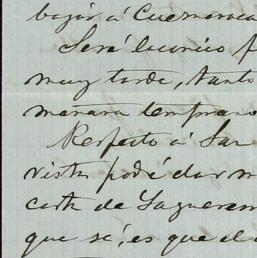 bajar á Cuernavaca
Seré laconico p
muy tarde, tanto
mañana temprano
Respecto á San
vista podré dar m
carta de Lagueren
que sé, es que el